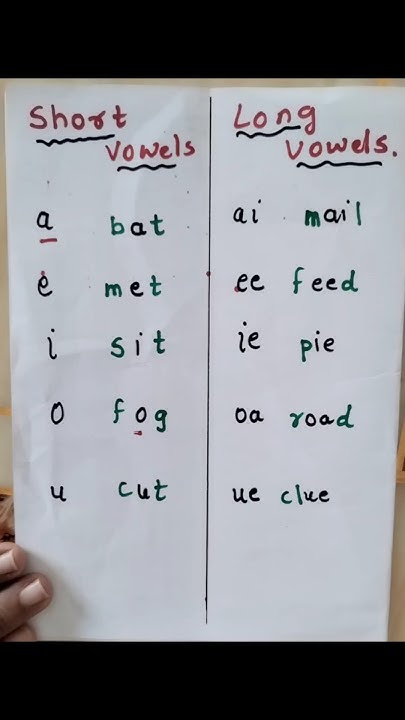 Short Vowels
a bat
e met
i sit
o fog
u cut
Long Vowels.
ai mail
ee feed
ie pie
oa road
ue clue